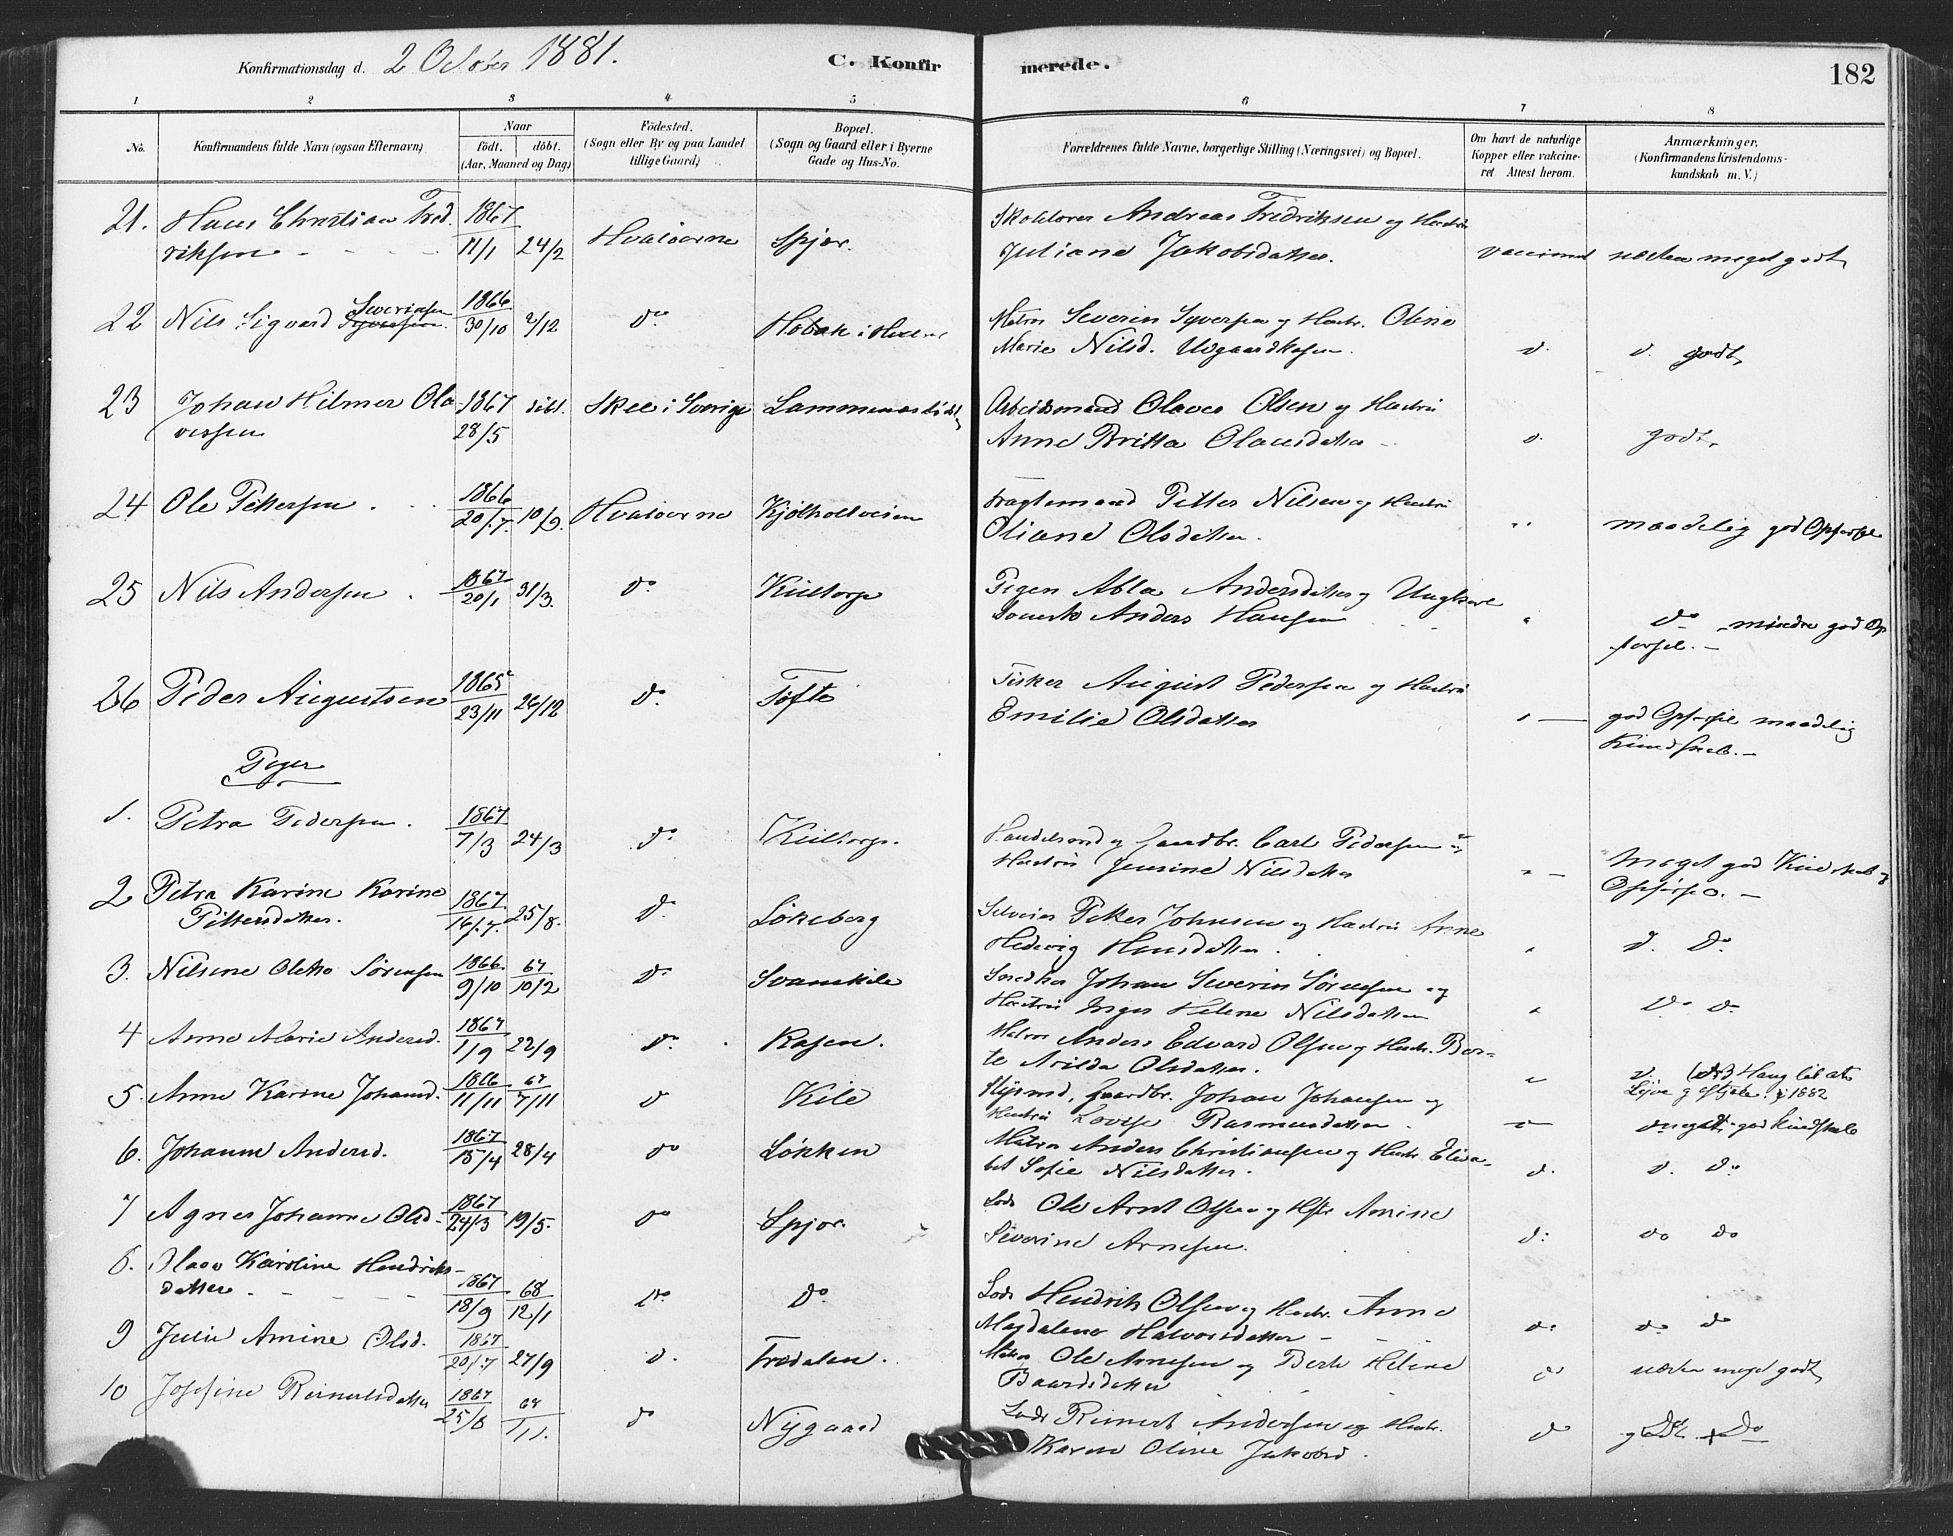 Konfirmationsdag d. 2 October 1881.
C. Konfirmerede.
182
1 2 3 4 5 6 7 8
No.
Konfirmandens fulde Navn (ogsaa Efternavn)
Naar
født. døbt.
(Aar, Maaned og Dag)
Fødested.
(Sogn eller By og paa Landet
tillige Gaard)
Bopæl.
(Sogn og Gaard eller i Byerne
Gade og Hus-No.
Forældrenes fulde Navne, borgerlige Stilling (Næringsvei) og Bopæl.
Om havt de naturlige
Kopper eller vakcine-
ret. Attest herom.
Anmærkninger.
(Konfirmandens Kristendoms-
kundskab m. V.)
21. Hans Christian Fred 1867 Andreas Fredriksen og Hustru
riksen 11/1 24/2 Hvaløerne Spjær. Juliane Jakobsdatter. vaccineret næsten meget godt
22 Nils Sigvard Severinsen 1866 Matros Severin Syversen og Hustr. Oline
30/10 2/12 do Marie Nilsd. Udgaardkasen. d. d. godt
23 Johan Hilmer Ola 1867 døbt. Skee i Sverige Arbeidsmand Olaves Olsen og Hustru
vessen 28/5 Anne Britta Olausdatter d. godt
24 Ole Pettersen 1866 Fragtemand Petter Nilsen og Hustru
20/7 10/9 Hvaløerne Kjølholtveien Oliane Olsdatter. " maadelig god Opførsel
25 Nils Andersen 1867 20/1 31/3 do Kiiltorp Pigen Abla Andersdatter og Ungkarl
Anders Hansen " do mindre god Op
førsel.
26 Peder Augustsen 1865 23/11 26/12 do Tofte Fisker August Pedersen og Hustru
Emilie Olsdatter god Opførsel maadelig
Kundskab.
Piger
1. Petra Pedersen. 1867 7/3 24/3 do Kiiltorp. Handelsmd og Gaardbr. Carl Pedersen og
Hustru Jensine Nilsdatter Meget god Kundskab og
Opførsel.
2 Petra Karine Karine 1867 Petter Johnsen og Hustru Anne
Pettersdatter. 14/7 25/8. do Løkeberg Hedevig Hansdatter. d. do
3. Nilsine Olette Sørensen 1866 67
9/10 10/2 do Svanekile Johan Severin Sørensen og
Hustru Inger Helene Nilsdatter do do
4 Anne Marie Andersd. 1867 1/9 22/9 do Kasen. Matros Anders Edvard Olsen og Hustr. Ber-
te Olsdatter.
5. Anne Karine Johansd. 1866 67
11/11 7/11 do Kile Gaardbr. Johan Johansen og
Hustru Lovise Rasmusdatter. 1882
6. Johanne Andersd. 1867 15/4 28/4 do Løkken Matros Anders Christiansen og Hustr. Elisa-
bet Sofie Nilsdatter. d. d. do
7 Agnes Johanne Olsd. 1867 24/3 19/5. do Spjær. Lods Ole Arnt Olsen og Hstr Amine
Severine Arnesen. d: do do
8. Karoline Hendriks-
datter. 1867 68
18/9 12/1 do do Lods Hendrik Olsen og Hustr. Anne
Magdalena Halvorsdatter do do do
9 Julie Amine Olsd. 1867 20/7 27/9 d. Trødalen. Matros Ole Arnesen og Berte Helene
Baardsdatter do næsten meget godt
10 Josefine Reinertsdatter 1867 25/8 1/1. do Nygaard Lods Reinert Andersen og Hustr.
Karen Oline Jakobsd. do do